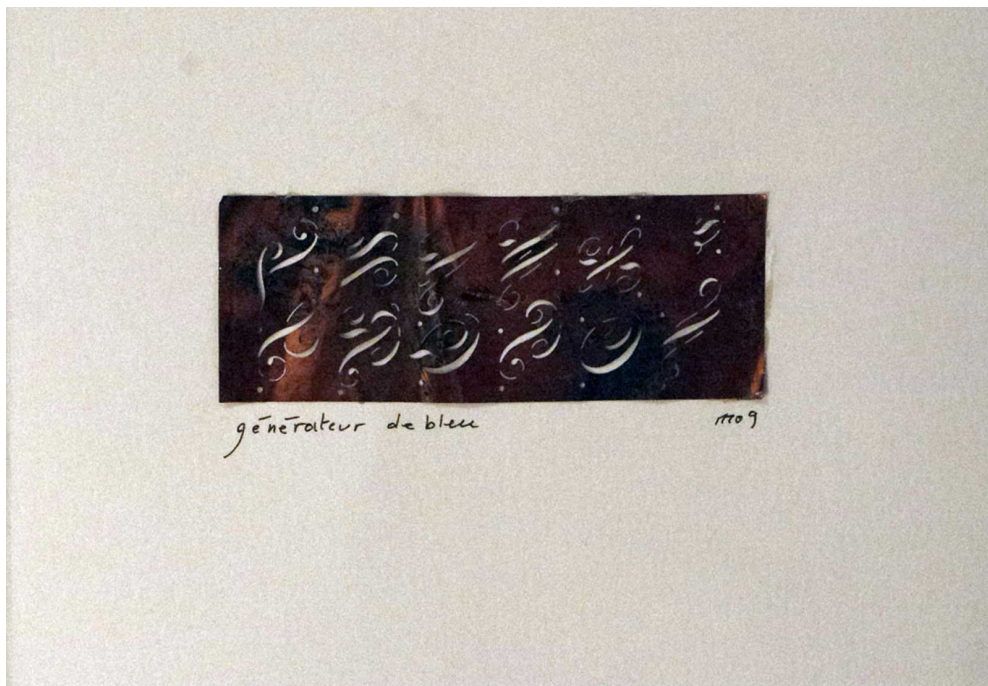 générateur de bleu mo9